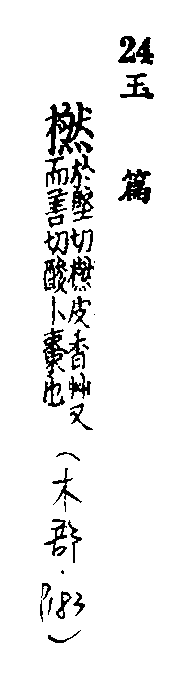 24玉篇
橪
於堅切橪皮香艸又
而善切酸小棗也
(木部.P183)